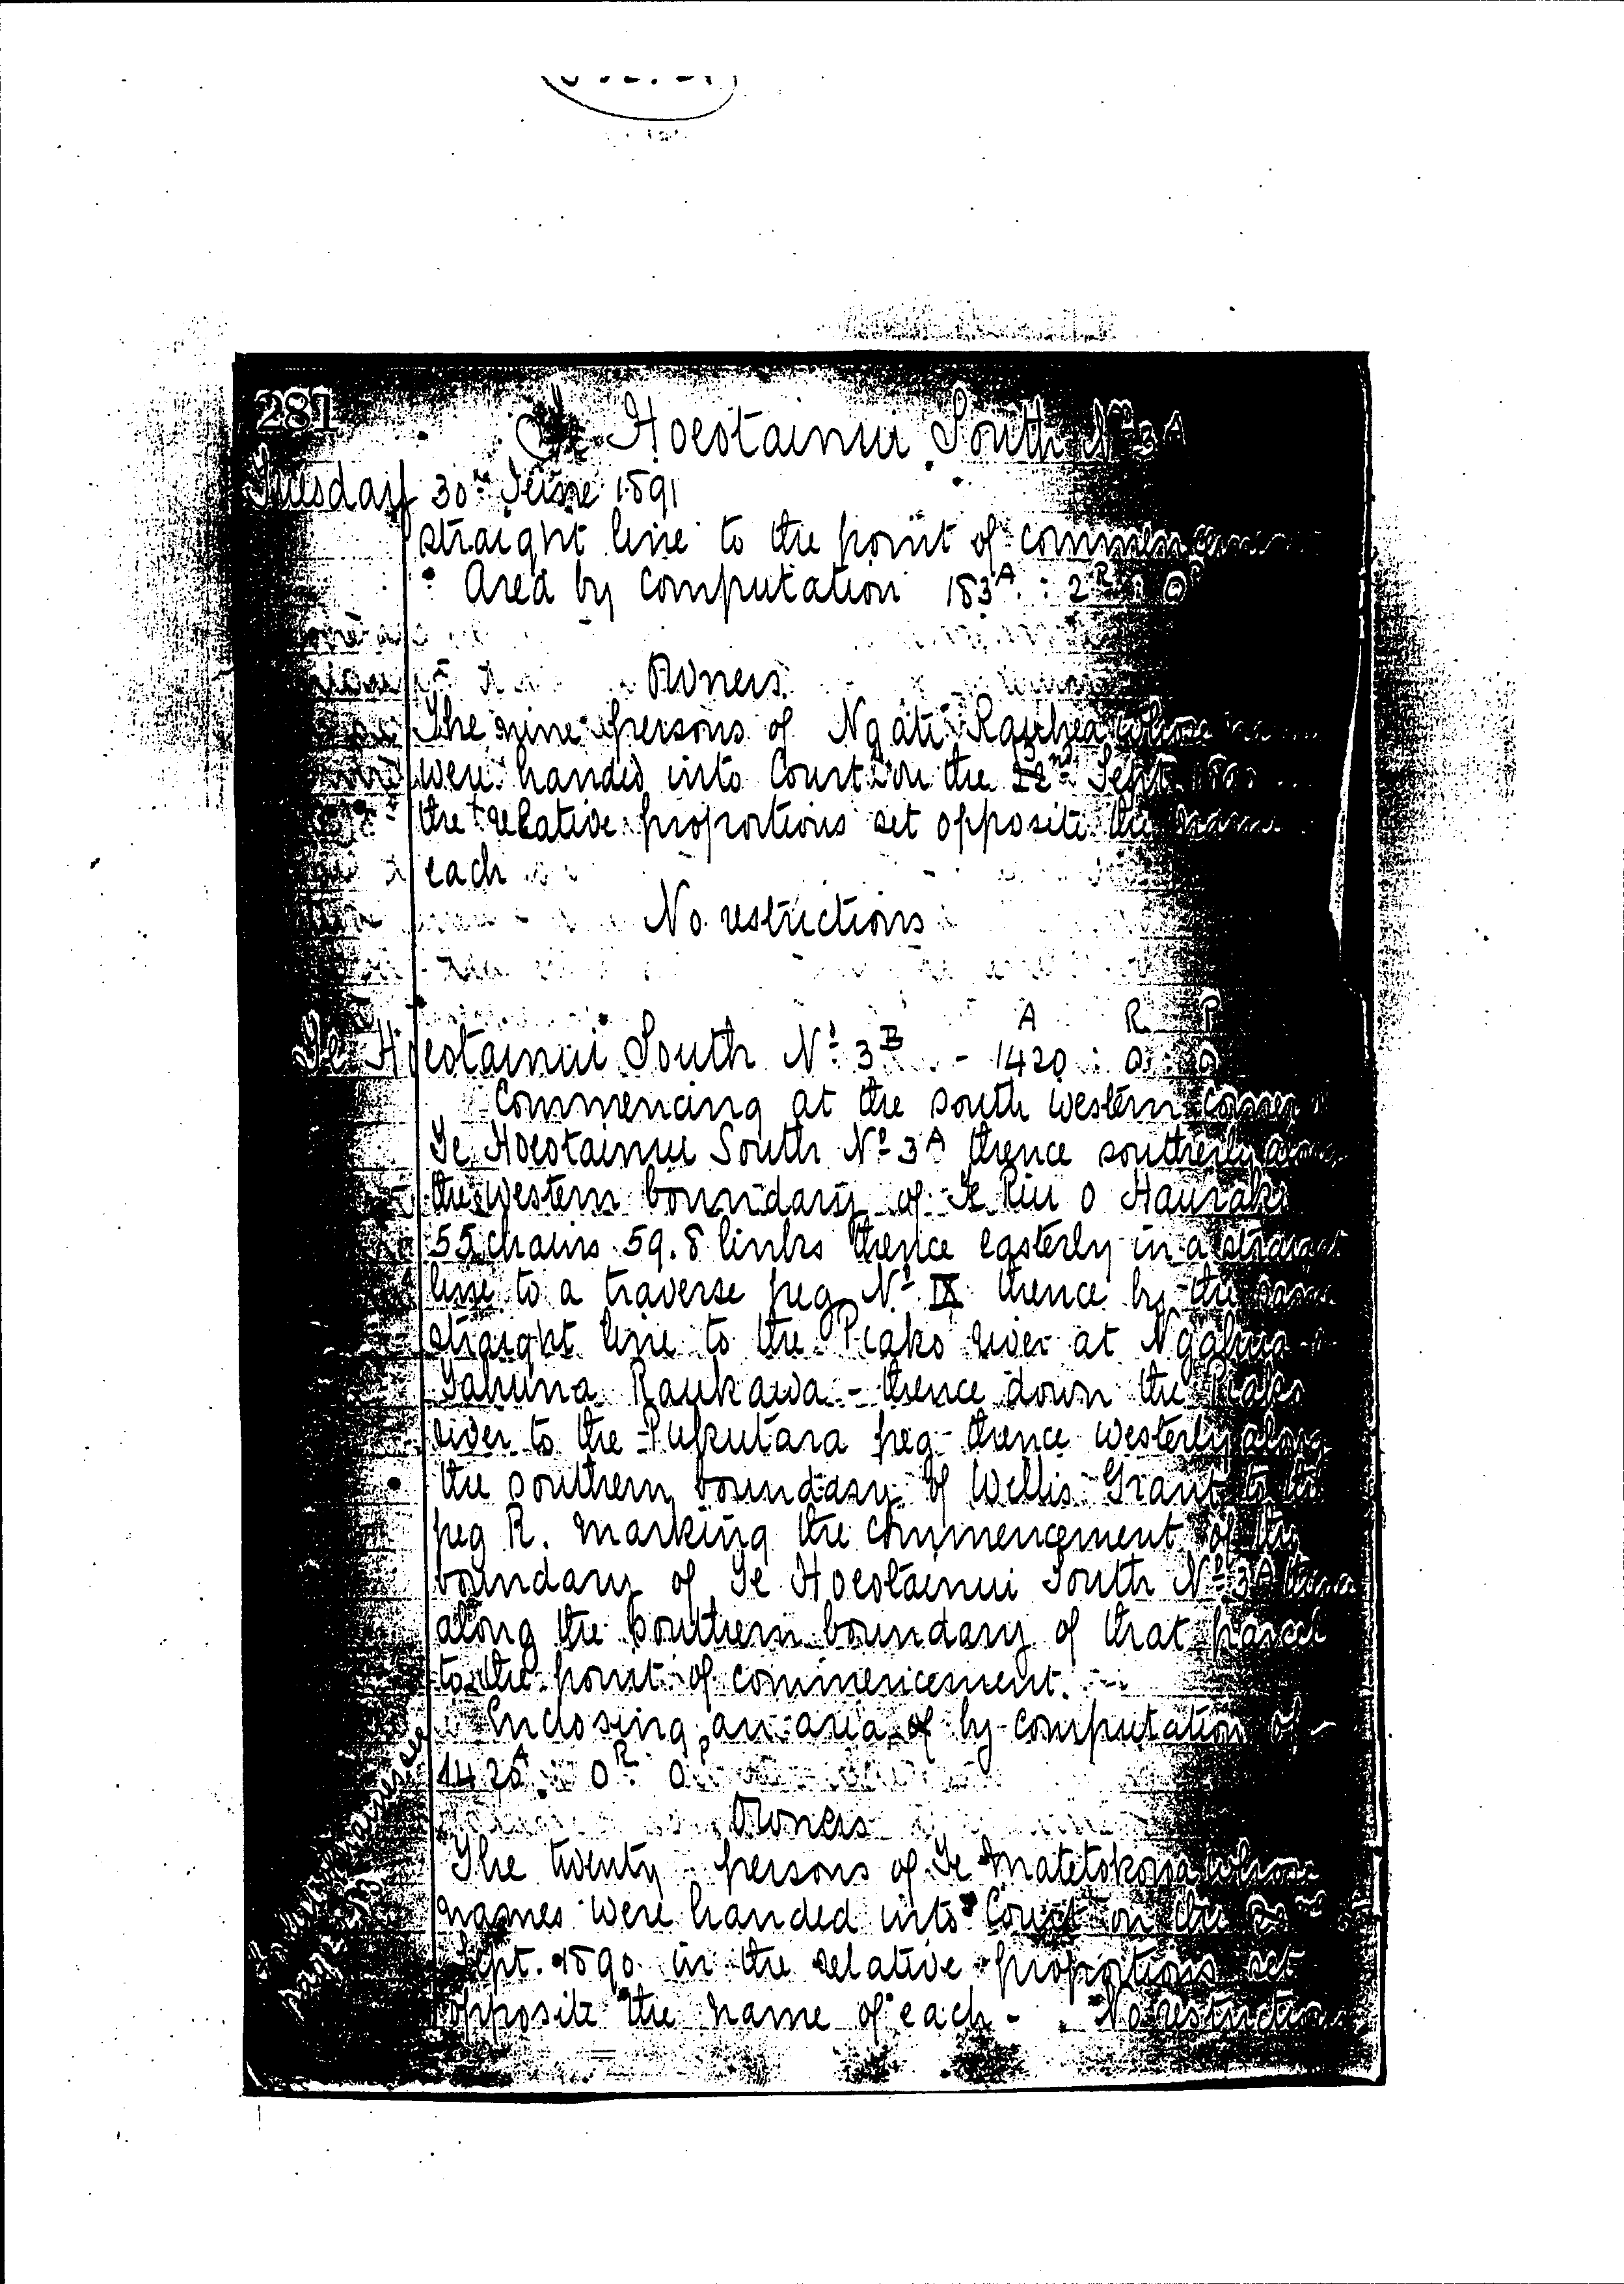 281
Te Hoeotainui South No 3A
Tuesday 30th June 1891
straight line to the point of commencement
Area by computation 183A : 2R : 0P
Owners
The nine persons of Ngati Rauhea whose
were handed into Court on the 22nd Sept.
the relative proportions set opposite the name
each
No restrictions
A R P
Te Hoeotainui South No 3B - 1420 : 0 : 0
Commencing at the south western corner
Te Hoeotainui South No 3A thence southerly along
the western boundary of Te Riu o Hauraki
55 chains 59.8 links thence easterly in a straight
line to a traverse peg No IX thence by the same
straight line to the Piako river at
Tahuna Raukawa - thence down the Piako
river to the Pukutara peg - thence westerly along
the southern boundary of Wellis Grant to the
peg R. marking the commencement of the
boundary of Te Hoeotainui South No 3A thence
along the southern boundary of that parcel
to the point of commencement.
Enclosing an area of by computation of -
1420A 0R 0P
Owners
The twenty persons of Te Matetokoroa whose
names were handed into Court on the
Sept. 1890 in the relative proportions set
opposite the name of each - No restrictions